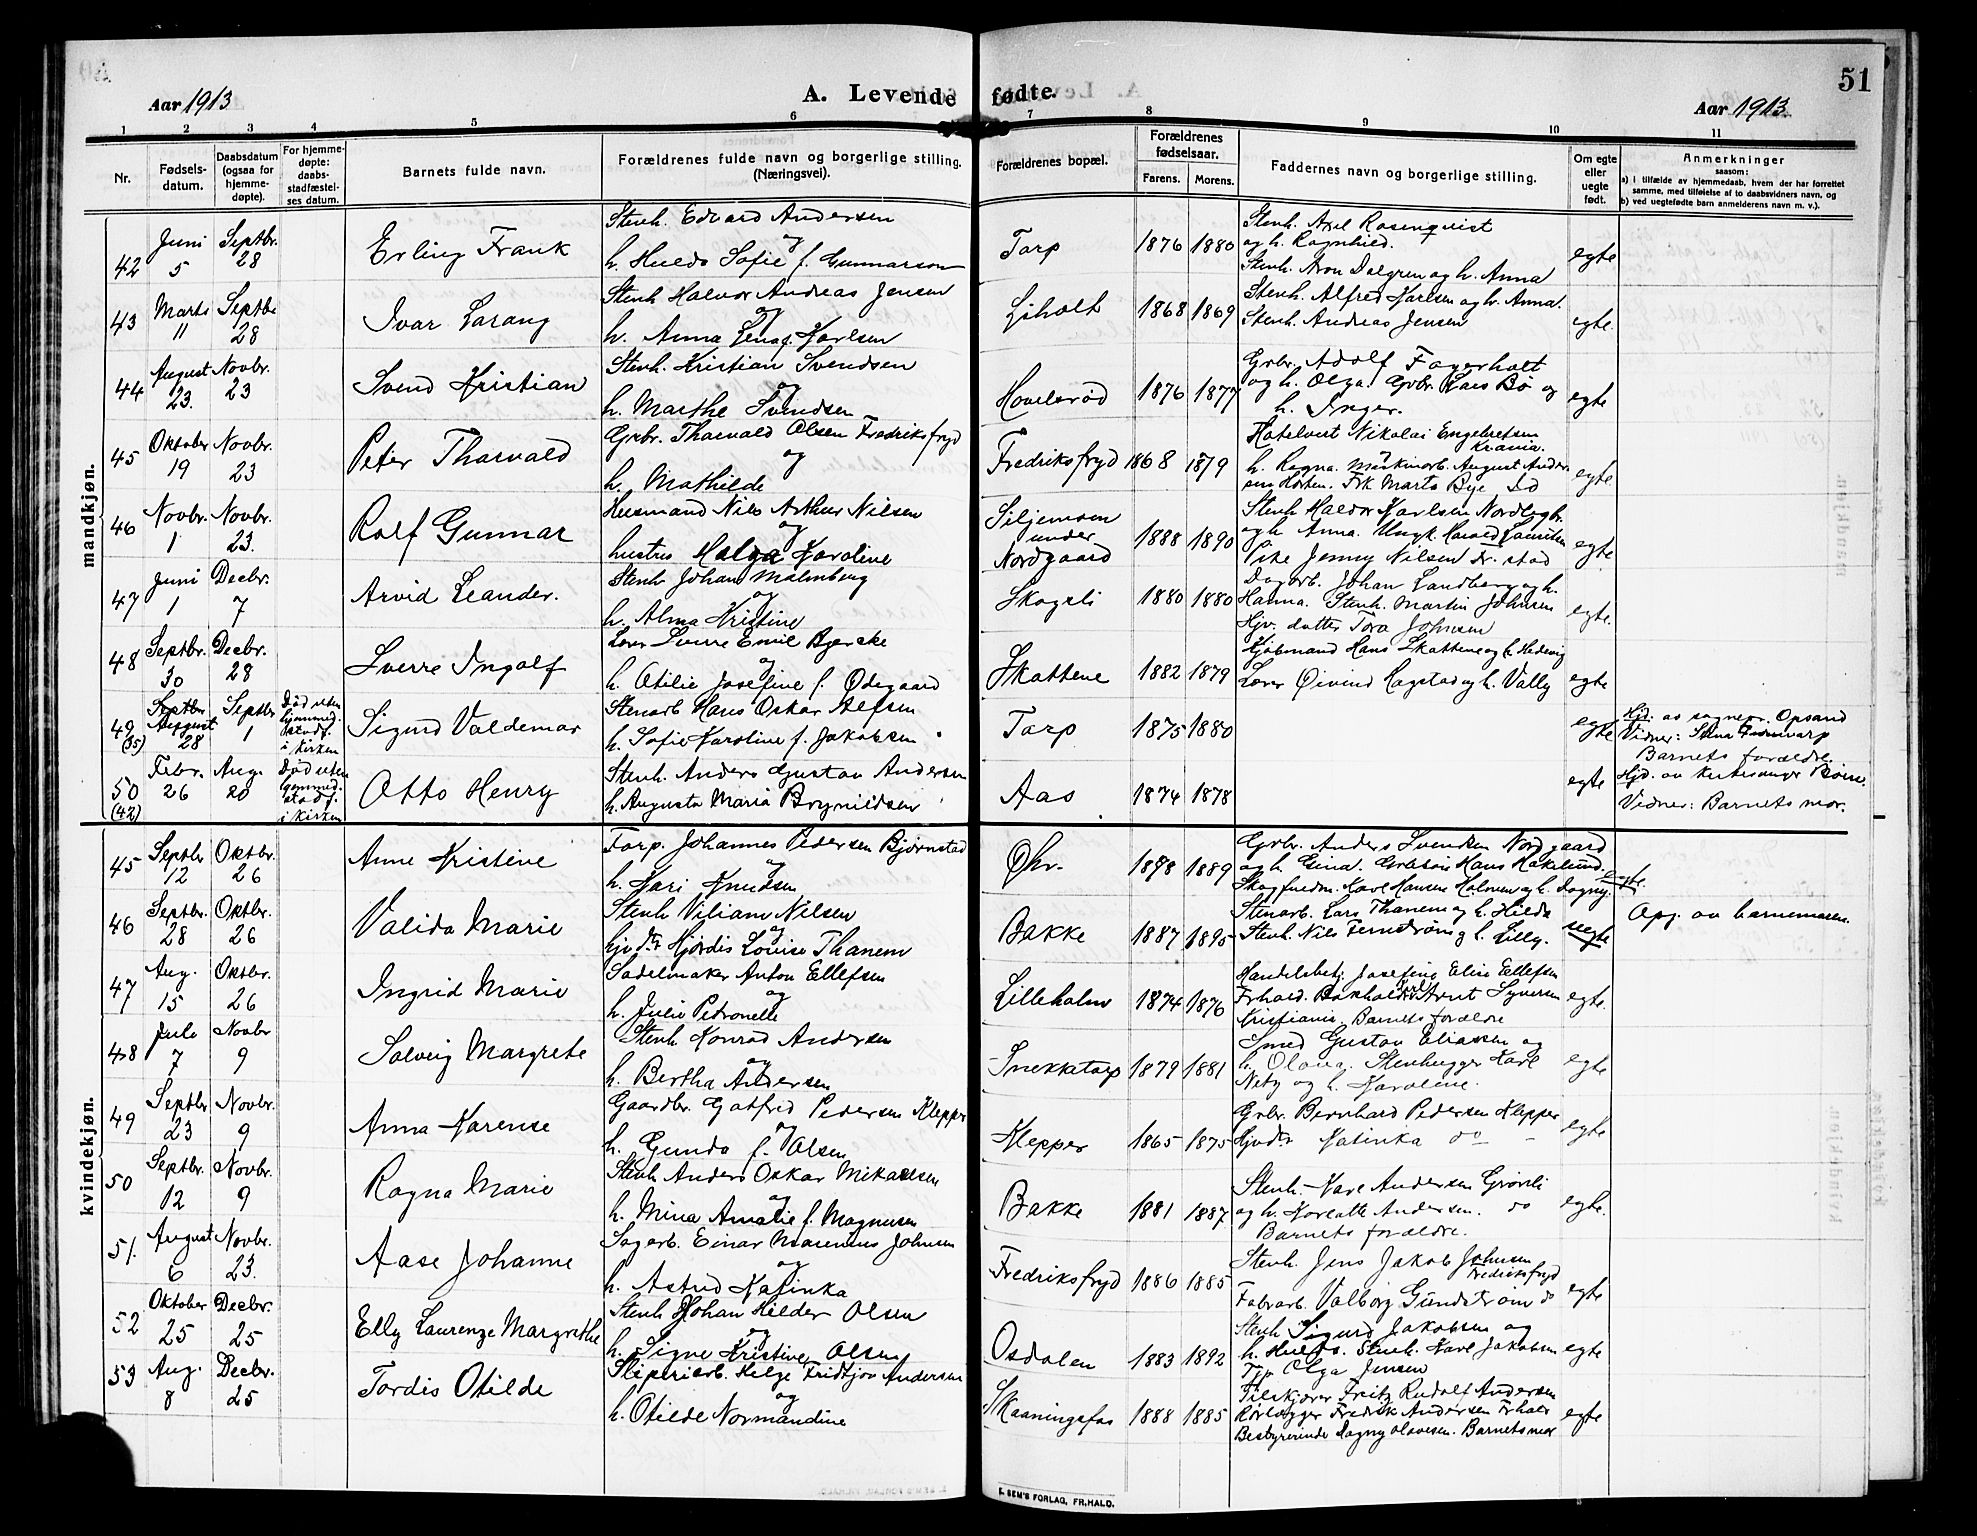 51
Aar 1913
A. Levende fødte.
Aar 1913.
1 2 3 4 5 6 7 8 9 10 11
Nr.
Fødsels-
datum.
Daabsdatum
(ogsaa for
hjemme-
døpte).
For hjemme-
døpte:
daabs-
stadfæstel-
ses datum.
Barnets fulde navn.
Forældrenes fulde navn og borgerlige stilling.
(Næringsvei).
Forældrenes bopæl.
Forældrenes
fødselsaar.
Farens. Morens.
Faddernes navn og borgerlige stilling.
Om egte
eller
uegte
født.
Anmerkninger
saasom:
a) i tilfælde av hjemmedaab, hvem der har forrettet
samme, med tilføielse af to daabsvidners navn, og
b) ved uegtefødte barn anmelderens navn m. v.).
mandkjøn.
42
Juni
5
Septbr.
28
Erling Frank
Stenh. Edvard Andersen
og
h. Hulda Sofie f. Gunnarson
Torp
1876 1880
Stenh. Axel Rosenqvist
og h. Ragnhild.
Stenh. Aron Dalgren og h. Anna
egte
43
Marts
11
Septbr
28
Ivar Larang
Stenh Halvor Andreas Jensen
og
h. Anna Lena f. Karlsen
Liholt
1868 1869
Stenh. Alfred Karlsen og h. Anna.
Stenh. Andreas Jensen
egte.
44
August
23.
Novbr.
23
Svend Kristian
Stenh. Kristian Svendsen
og
h. Marthe Svendsen
Hovelsrød
1876 1877
Grbr. Adolf Fagerholt
og h. Olga. Grbr. Lars Bø og
h. Inger.
egte
45
Oktober
19
Novbr.
23
Peter Thorvald
Grbr. Thorvald Olsen Fredriksfryd
og
h. Mathilde
Fredriksfryd
1868 1879
Hotelvert Nikolai Engebretsen
Krania.
h. Ragna. Maskinarb. August Ander
sen Horten. Frk Marta Bye
egte
46
Novbr.
1
Novbr.
23.
Rolf Gunnar
Husmand Nils Arthur Nilsen
og
hustru Helga Karoline
Siljemoen
under
Nordgaard
1888 1890
Stenh Haldor Karlsen
og h Anna. Harald Lauritsen
Pike Jenny Nilsen Fr. stad
egte
47
Juni
1
Decbr.
7
Arvid Leander.
Stenh Johan Malmberg
og
h. Alma Kristine
Skogsli
1880 1880
Dagarb. Johan Landberg og h.
Hanna. Stenh. Martin Johnsen
Hjv. datter Tora Johnsen
egte.
48
Septbr.
30
Decbr.
28
Sverre Ingolf
Lærer Sverre Emil Bjercke
og
h. Otilie Josefine f. Ødegaard
Skattene
1882 1879
Kjøbmand Hans Skattene og h. Hedevig
Lærer Øivind Hagstad og h. Vally
egte
49
(35)
Septbr
August
28
Septbr
1
Død uten
hjemmed.
stadf.
i kirken
Sigurd Valdemar
Stenarb Hans Oskar Alfsen
h. Sofie Karoline f. Jakobsen
Torp
1875 1880
egte
Hjd. av sognepr. Opsand
Barnets forældre.
50
(42)
Febr.
26
Aug.
20
Død uten
hjemmed.
stadf.
i kirken
Otto Henry
Stenh. Anders Gustav Andersen
h. Augusta Maria Brynildsen
Aas
1874 1878
egte
Hjd. av kirkesanger Bøim.
Vidner: Barnets mor.
kvindekjøn.
45
Septbr
12
Oktbr.
26
Anne Kristine
Forp. Johannes Pedersen Bjørnstad
og
h. Kari Knudsen
Ohr.
1878 1889
Grbr. Anders Svendsen Nordgaard
og h. Gina. Hans Hakelund.
Karl Hansen Holmen og h. Dagny.
egte.
46
Septbr.
28
Oktbr.
26
Valida Marie
Stenh Viliam Nilsen
og
hjv. dtr Hjørdis Louise Thanem
Bakke
1887 1895
Stenarb. Lars Thanem og h. Hilda
Stenh. Nils Ternstrøm og h. Lilly.
uegte
Opg. av barnemoren.
47
Aug.
15
Oktbr.
26
Ingrid Marie
Sadelmaker Anton Ellefsen
og
h. Julie Petronelle
Lilleholm
1874 1876
Handelsbetj. Josefine Elise Ellefsen
Frhald. Bokholder Arnt Syversen
Kristiania. Barnets forældre
egte.
48
Juli
7
Novbr
9
Solveig Margrete
Stenh Konrad Andersen
og
h. Bertha Andersen
Snekkatorp
1879 1881
Smed Gustav Eliassen og
h. Olava. Stenhugger Karl
Netz og h. Karoline.
egte
49
Septbr
23
Novbr.
9
Anna Karense
Gaardbr. Gotfred Pedersen Klepper
og
h. Gunda f. Olsen
Klepper
1865 1875
Grbr. Bernhard Pedersen Klepper
Hjvdtr Katinka do
egte
50
Septbr.
12
Novbr.
9
Ragna Marie
Stenh Anders Oskar Mikaelsen
og
h. Mina Amalie f. Magnusen
Bakke
1881 1887
Stenh. Karl Andersen Grønli
og h. Andersen. do
Barnets forældre.
egte.
51.
August
6
Novbr.
23.
Aase Johanne
Sagarb. Einar Marenius Johnsen
og
h. Astrid Katinka
Fredriksfryd
1886 1885
Stenh. Jens Jakob Johnsen
Fredriksfryd
Fabrarb. Valborg Gundstrøm do
egte
52
Oktober
25
Decbr.
25
Elly Laurenze Margrethe
Stenh Johan Hilder Olsen
og
h. Signe Kristine Olsen
Osdalen
1883 1892
Stenh Sigurd Jakobsen og
h. Hulda. Stenh. Karl Jakobsen
Tjp Olga Jensen
egte
53
Aug.
8
Decbr.
25
Tordis Otilde
Sliperiarb. Helge Fridtjov Andersen
og
h. Otilde Normandine
Skaaningsfos
1888 1885
Filskjærer Fritz Rudolf Andersen
Rørlægger Fredrik Andersen Frhald
Bestyrerinde Dagny Olavesen. Barnets mor
egte
E. SEM'S FORLAG, FR.HALD.